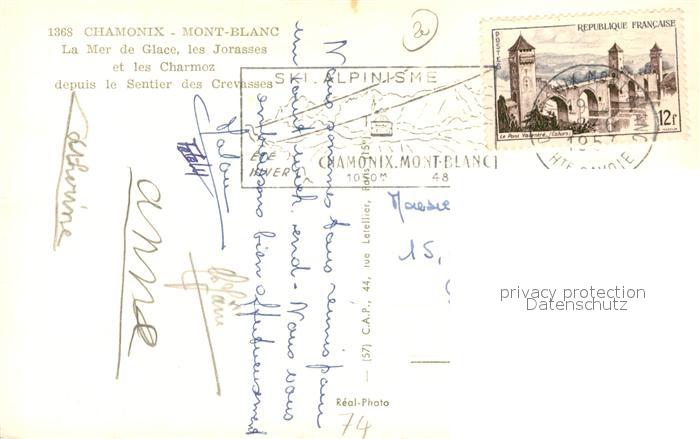 1368 CHAMONIX - MONT-BLANC
La Mer de Glace, les Jorasses
et les Charmoz
depuis le Sentier des Crevasses
SKI. ALPINISME
ÉTÉ
HIVER
CHAMONIX.MONT-BLANC
1050M 48
POSTES
REPUBLIQUE FRANÇAISE
12F
Le Pont Valentré, (Cahors)
1957
HTE SAVOIE
Nous sommes tous réunis pour
un court week-end - Nous vous
embrassons bien affectueusement
Catherine
anne
15,
(57) C.A.P., 44, rue Letellier, Paris-15e
Réal-Photo
74
privacy protection
Datenschutz